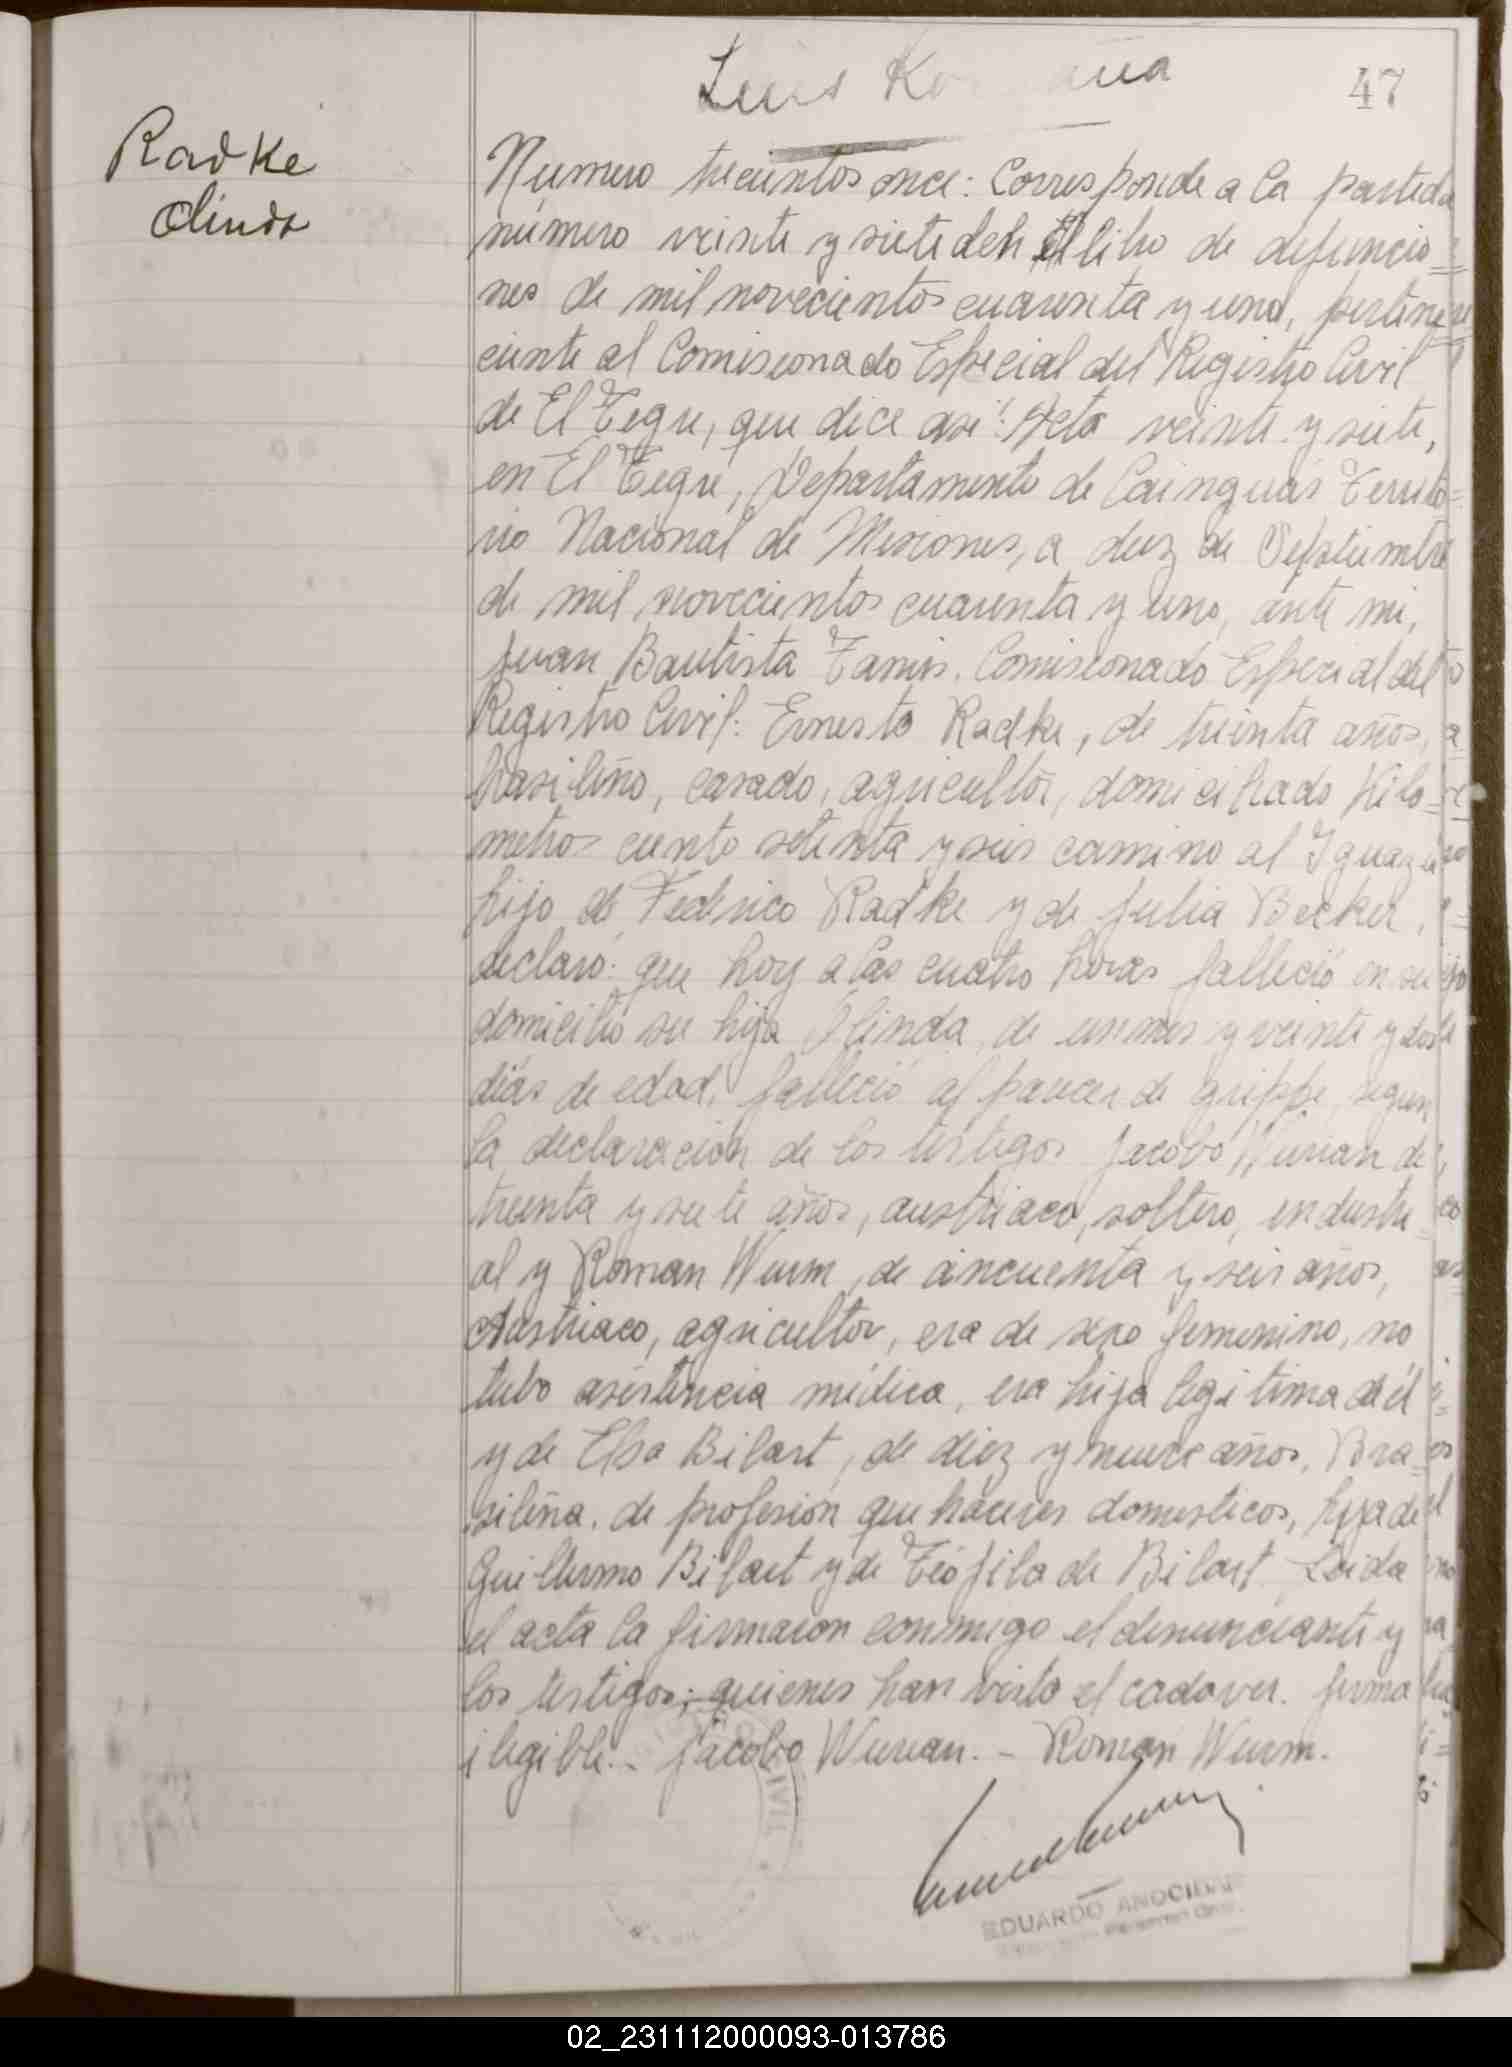 Luis
47
Radke
Olinda
Número trecientos once: Corresponde a la partida
número veinte y siete del libro de defuncio=
nes de mil novecientos cuarenta y uno, pertene
ciente al Comisionado Especial del Registro Civil
de El Tegre, que dice asi: Acta veinte y siete,
en El Tegre, Departamento de Cainguás Territo=
rio Nacional de Misiones, a diez de Septiembre
de mil novecientos cuarenta y uno, ante mi,
Juan Bautista Comisionado Especial del
Registro Civil: Ernesto Radke, de treinta años,
brasileño, casado, agricultor, domiciliado Kilo=
metro ciento setenta y seis camino al Iguazu
hijo de Federico Radke y de Julia Becker,
declaró: que hoy a las cuatro horas falleció en su
domicilio su hija Olinda, de un mes y veinte y dos
dias de edad, falleció al parecer de grippe, segun
la declaración de los testigos Jacobo Wurian de
treinta y siete años, austriaco, soltero, industri
al y Roman Wurm, de cincuenta y seis años,
Austriaco, agricultor, era de sexo femenino, no
tubo asistencia médica, era hija legitima de él
y de Elsa Bilart, de diez y nueve años, Bra=
sileña, de profesión que haceres domesticos, hija de
Guillermo Bilart y de Teófila de Bilart Leida
el acta la firmaron conmigo el denunciante y
los testigos; quienes han visto el cadaver. firma
ilegible.- Jacobo Wurian.- Roman Wurm.
CIVIL
EDUARDO
02_231112000093-013786